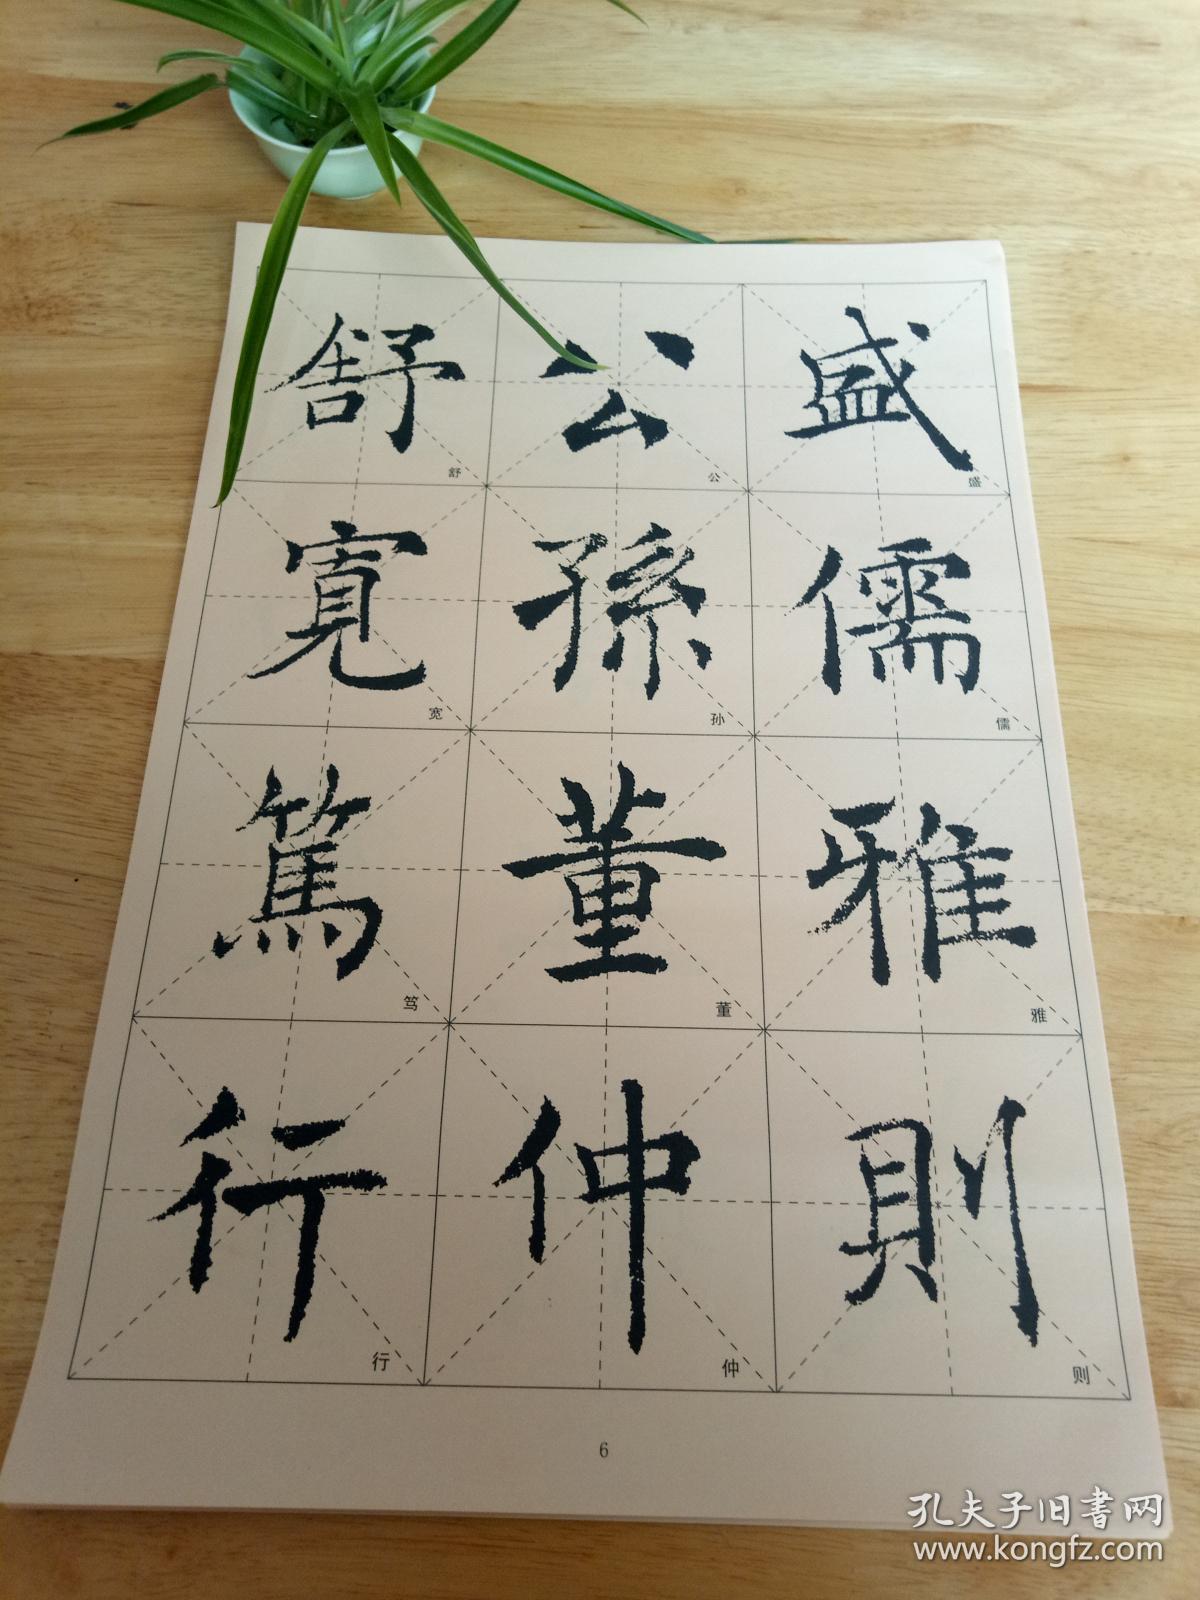 盛儒雅則
盛
儒
雅
则
公孫董仲
公
孙
董
仲
舒寬篤行
舒
宽
笃
行
6
孔夫子旧书网
www.kongfz.com